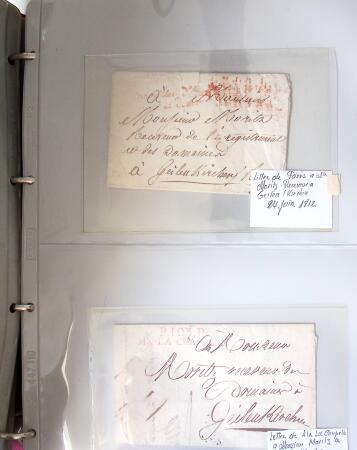 à Monsieur
Monsieur Moritz
Receveur de l'enregistrement
et des Domaines
à Geilenkirchen
Lettre de Paris a Mr
Moritz Receveur a
Geilen/Kirchen
24 juin 1812
P.103.P.
AIX-LA-CHAP
à Monsieur
Moritz receveur des
Domaines à
Geilenkirchen
Lettre de Aix La Chapelle
a Monsieur Moritz a